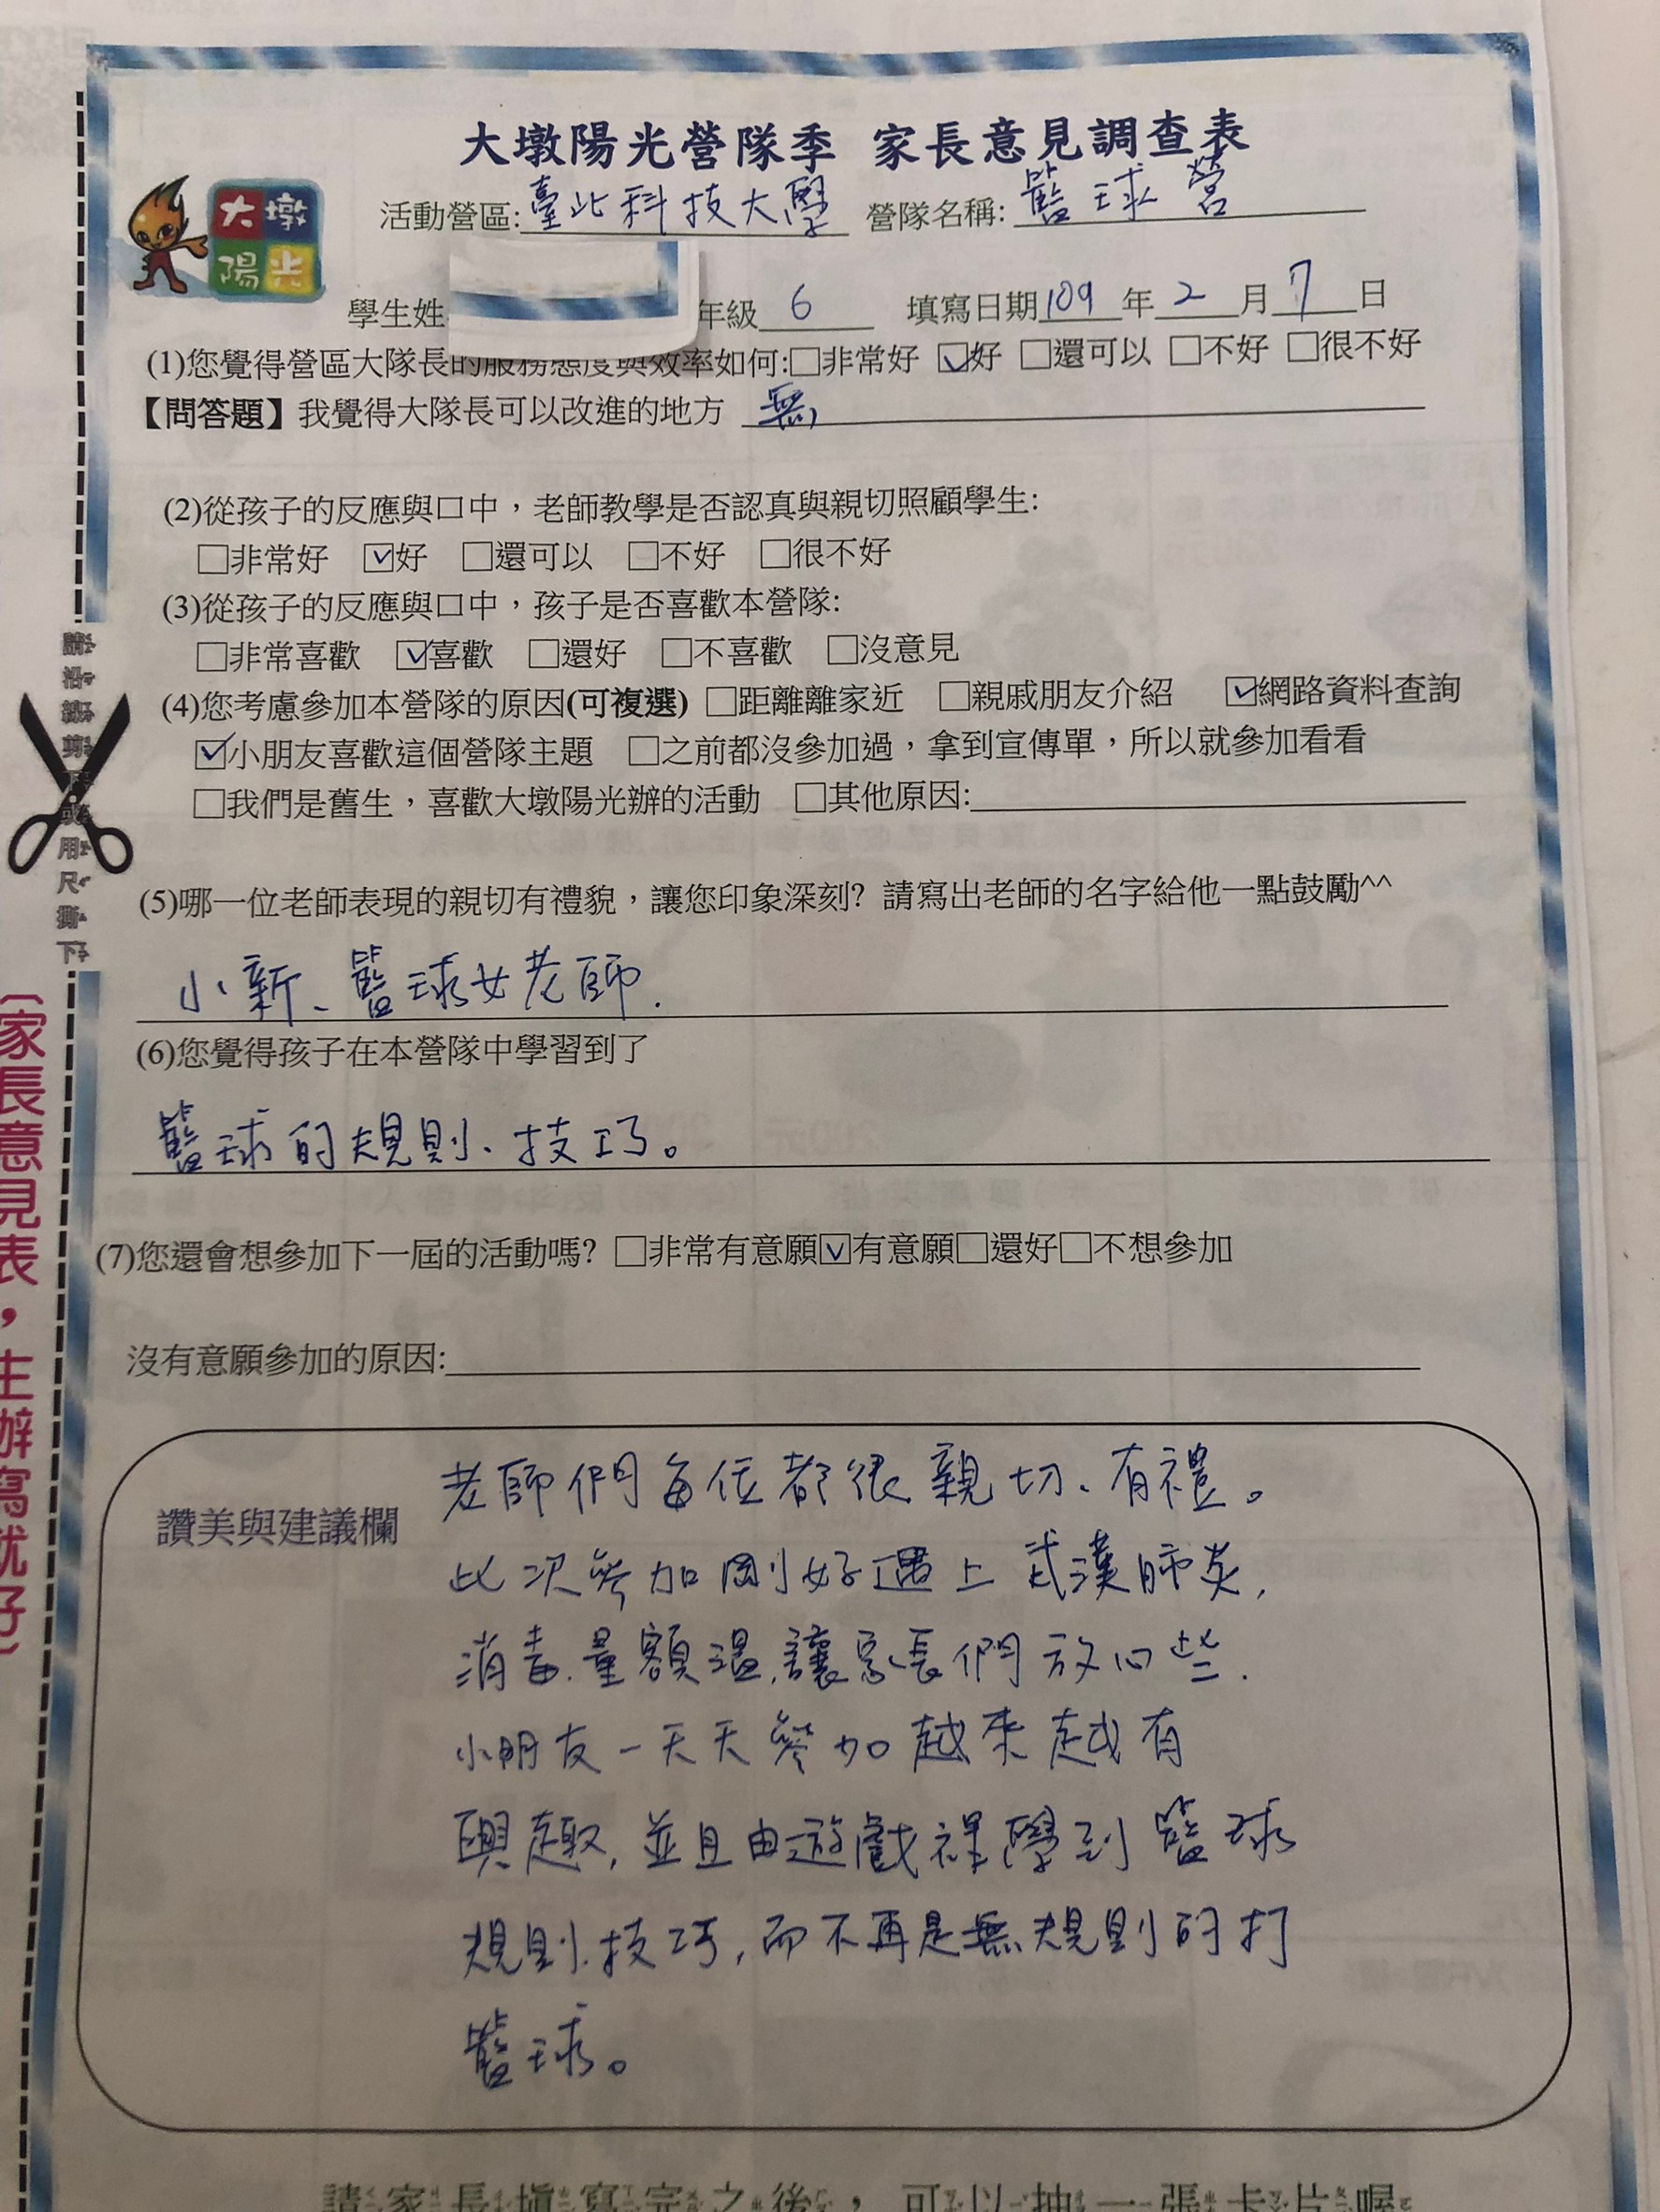 大墩陽光營隊季 家長意見調查表
大墩
陽光
活動營區:臺北科技大學 營隊名稱:籃球營
學生姓 年級 6 填寫日期109年2月7日
(1)您覺得營區大隊長的服務態度與效率如何:□非常好 ☑好 □還可以 □不好 □很不好
【問答題】我覺得大隊長可以改進的地方 無
(2)從孩子的反應與口中，老師教學是否認真與親切照顧學生:
□非常好 ☑好 □還可以 □不好 □很不好
(3)從孩子的反應與口中，孩子是否喜歡本營隊:
□非常喜歡 ☑喜歡 □還好 □不喜歡 □沒意見
(4)您考慮參加本營隊的原因(可複選) □距離離家近 □親戚朋友介紹 ☑網路資料查詢
☑小朋友喜歡這個營隊主題 □之前都沒參加過，拿到宣傳單，所以就參加看看
□我們是舊生，喜歡大墩陽光辦的活動 □其他原因:
(5)哪一位老師表現的親切有禮貌，讓您印象深刻? 請寫出老師的名字給他一點鼓勵^^
小新、籃球女老師.
(6)您覺得孩子在本營隊中學習到了
籃球的規則、技巧。
(7)您還會想參加下一屆的活動嗎? □非常有意願☑有意願□還好□不想參加
沒有意願參加的原因:
讚美與建議欄
老師們每位都很親切、有禮。
此次參加剛好遇上武漢肺炎,
消毒、量額溫,讓家長們放心些.
小朋友一天天參加越來越有
興趣,並且由遊戲裡學到籃球
規則、技巧,而不再是無規則的打
籃球。
請家長填寫完之後，可以抽一張卡片喔
請沿線剪下或用尺撕下
(家長意見表，主辦寫就好)